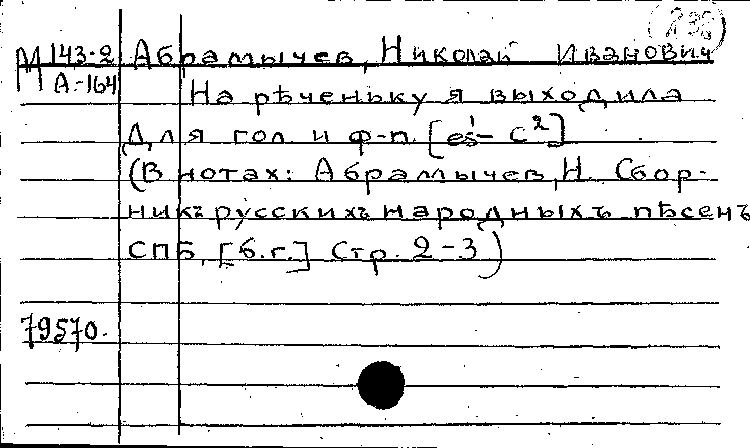 (235)
М 143-2 Абрамычев, Николай Иванович
А-164
На рѣченьку я выходила
Для гол. и ф-п. [es¹- c²]
(В нотах: Абрамычев, Н. Сбор-
никъ русскихъ народныхъ пѣсенъ
СПБ, [б.г.] Стр. 2-3)
79570.